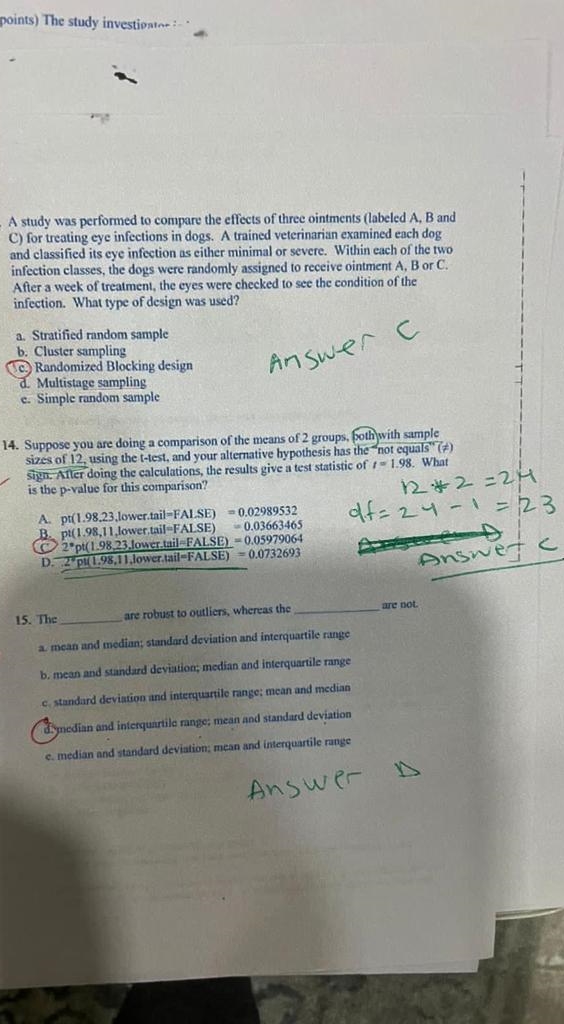 points) The study investigator
A study was performed to compare the effects of three ointments (labeled A, B and
C) for treating eye infections in dogs. A trained veterinarian examined each dog
and classified its eye infection as either minimal or severe. Within each of the two
infection classes, the dogs were randomly assigned to receive ointment A, B or C.
After a week of treatment, the eyes were checked to see the condition of the
infection. What type of design was used?
a. Stratified random sample
b. Cluster sampling
c. Randomized Blocking design
d. Multistage sampling
e. Simple random sample
Answer C
14. Suppose you are doing a comparison of the means of 2 groups, both with sample
sizes of 12, using the t-test, and your alternative hypothesis has the "not equals" (≠)
sign. After doing the calculations, the results give a test statistic of t = 1.98. What
is the p-value for this comparison?
A. pt(1.98,23,lower.tail=FALSE) = 0.02989532
B. pt(1.98,11,lower.tail=FALSE) = 0.03663465
C. 2*pt(1.98,23,lower.tail=FALSE) = 0.05979064
D. 2*pt(1.98,11,lower.tail=FALSE) = 0.0732693
12 * 2 = 24
df = 24 - 1 = 23
Answer C
15. The ________ are robust to outliers, whereas the ________ are not.
a. mean and median; standard deviation and interquartile range
b. mean and standard deviation; median and interquartile range
c. standard deviation and interquartile range; mean and median
d. median and interquartile range; mean and standard deviation
e. median and standard deviation; mean and interquartile range
Answer D